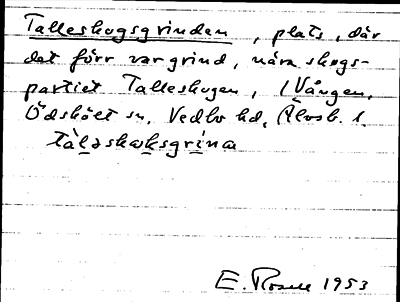 Talleskogsgrinden, plats, där
det förr var grind, nära skogs-
partiet Talleskogen, i Vången,
Ödskölt sn, Vedbo hd, Älvsb. l.
tàlaskωksgrína
E. Rosell 1953